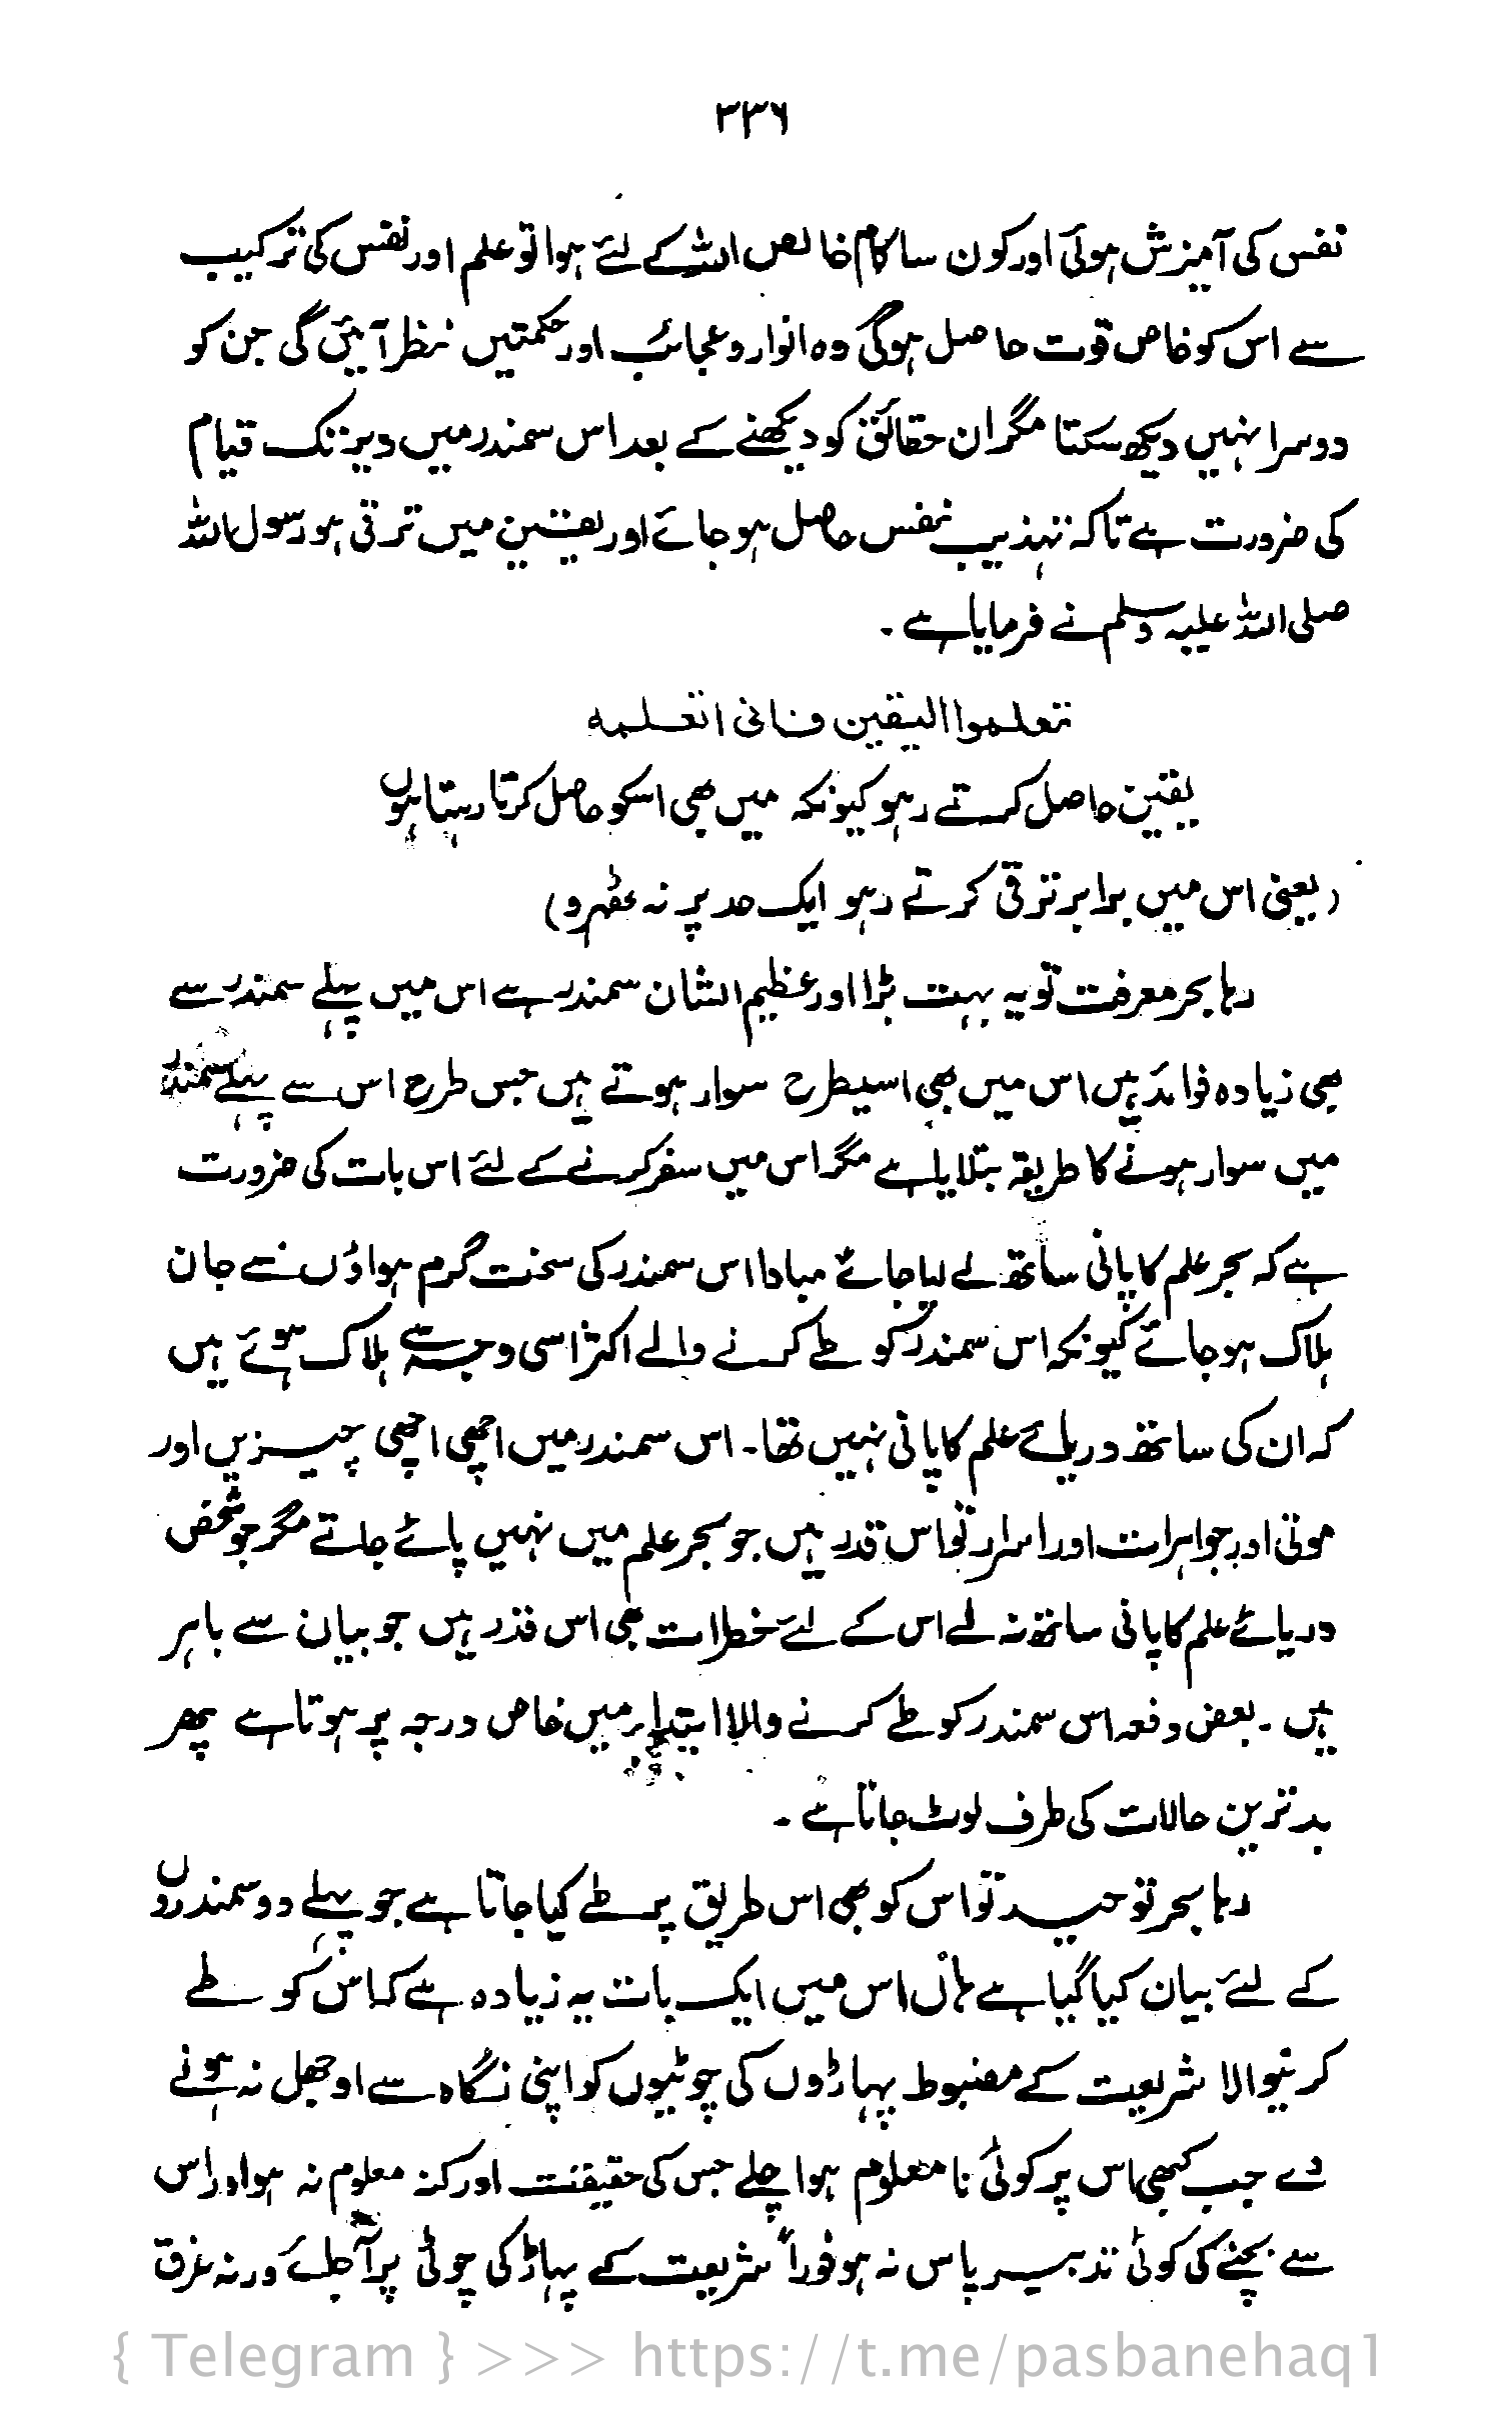 ۳۳۶
نفس کی آمیزش ہوئی اور کون سا کام خالص اللہ کے لئے ہوا تو علم اور نفس کی ترکیب
سے اس کو خاص قوت حاصل ہوگی وہ انوار وعجائب اور حکمتیں نظر آئیں گی جن کو
دوسرا نہیں دیکھ سکتا مگر ان حقائق کو دیکھنے کے بعد اس سمندر میں دیر تک قیام
کی ضرورت ہے تاکہ تہذیب نفس حاصل ہو جائے اور یقین میں ترقی ہو رسول اللہ
صلی اللہ علیہ وسلم نے فرمایا ہے ۔
تعلموا الیقین فانی اتعلمہ
یقین حاصل کرتے رہو کیونکہ میں بھی اسکو حاصل کرتا رہتا ہوں
(یعنی اس میں برابر ترقی کرتے رہو ایک حد پر نہ ٹھہرو)
رہا بحر معرفت تو یہ بہت بڑا اور عظیم الشان سمندر ہے اس میں پہلے سمندر سے
بھی زیادہ فوائد ہیں اس میں بھی اسیطرح سوار ہوتے ہیں جس طرح اس سے پہلے سمندر
میں سوار ہونے کا طریقہ بتلایا ہے مگر اس میں سفر کرنے کے لئے اس بات کی ضرورت
ہے کہ بحر علم کا پانی ساتھ لے لیا جائے مبادا اس سمندر کی سخت گرم ہواؤں سے جان
ہلاک ہو جائے کیونکہ اس سمندر کو طے کرنے والے اکثر اسی وجہ سے ہلاک ہوئے ہیں
کہ ان کی ساتھ دریائے علم کا پانی نہیں تھا ۔ اس سمندر میں اچھی اچھی چیزیں اور
موتی اور جواہرات اور اسرار تو اس قدر ہیں جو بحر علم میں نہیں پائے جاتے مگر جو شخص
دریائے علم کا پانی ساتھ نہ لے اس کے لئے خطرات بھی اس قدر ہیں جو بیان سے باہر
ہیں ۔ بعض دفعہ اس سمندر کو طے کرنے والا ابتداء میں خاص درجہ پر ہوتا ہے پھر
بدترین حالات کی طرف لوٹ جاتا ہے ۔
رہا بحر توحید تو اس کو بھی اس طریق پر طے کیا جاتا ہے جو پہلے دو سمندروں
کے لئے بیان کیا گیا ہے ہاں اس میں ایک بات یہ زیادہ ہے کہ اس کو طے
کرنیوالا شریعت کے مضبوط پہاڑوں کی چوٹیوں کو اپنی نگاہ سے اوجھل نہ ہونے
دے جب کبھی اس پر کوئی نامعلوم ہوا چلے جس کی حقیقت اور کنہ معلوم نہ ہو اور اس
سے بچنے کی کوئی تدبیر پاس نہ ہو فوراً شریعت کے پہاڑ کی چوٹی پر آجائے ورنہ غرق
{ Telegram } >>> https://t.me/pasbanehaq1